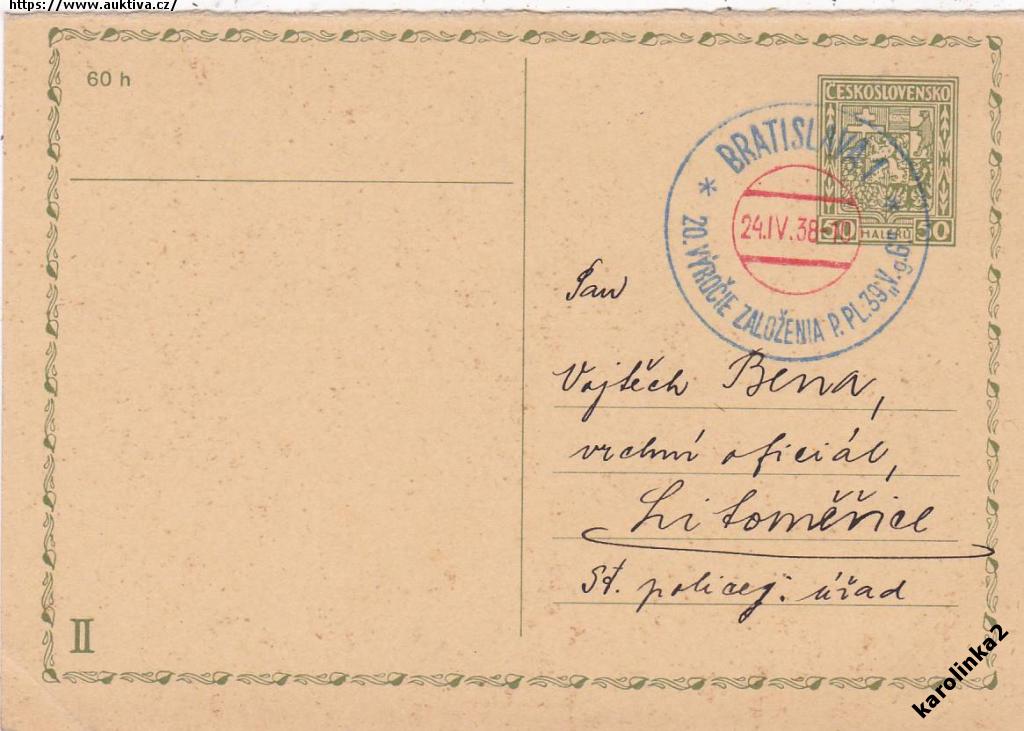 https://www.auktiva.cz/
60 h
ČESKOSLOVENSKO
50 HALÉŘŮ 50
* BRATISLAVA 1 *
24.IV.38-10
20. VÝROČIE ZALOŽENIA P. PL. 39 „V.g.G“
Pan
Vojtěch Bena,
vrchní oficiál,
Litoměřice
St. policej. úřad
II
karolinka2